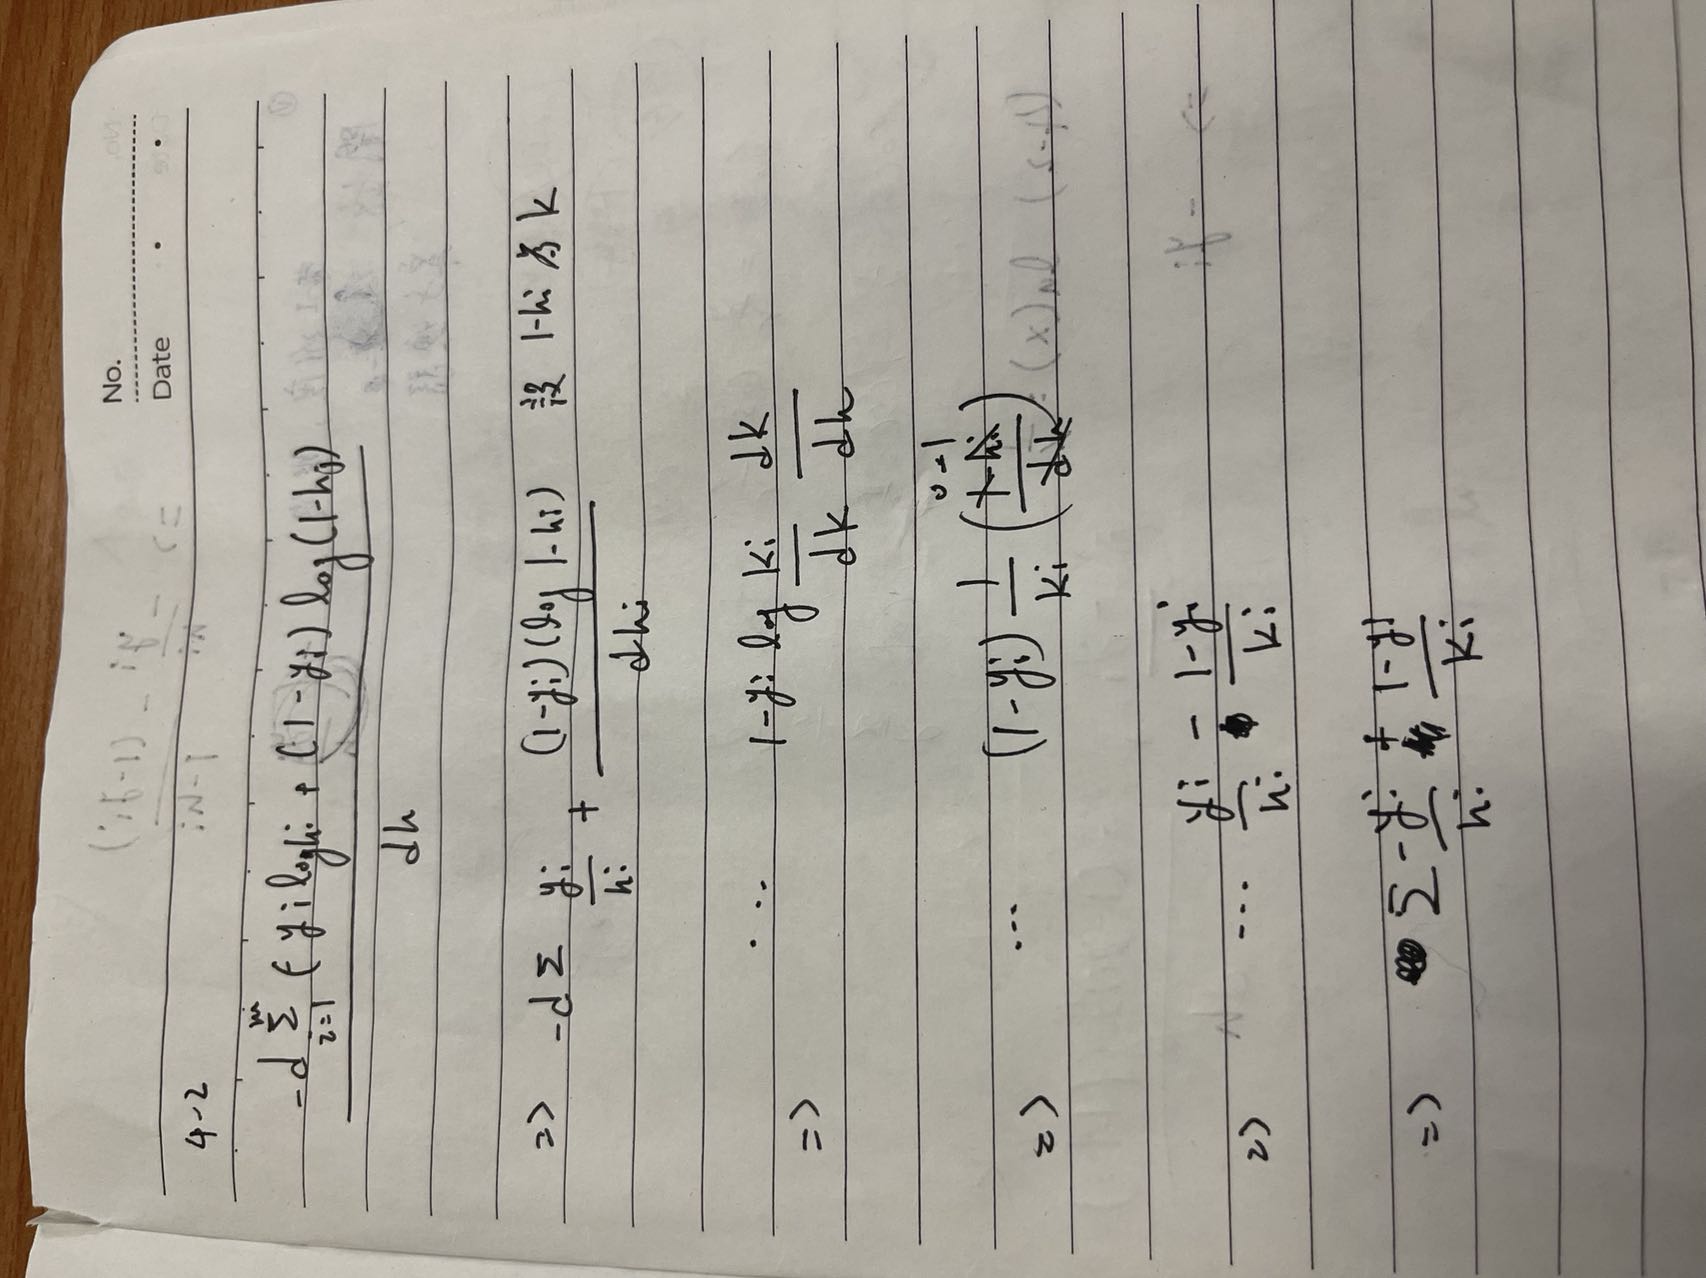 No.
Date
4-2
-d Σ_{i=1}^{m} (y_i log h_i + (1-y_i) log(1-h_i)
dh
=> -d Σ y_i/h_i + (1-y_i)(log 1-h_i)/dh_i 設 1-h_i 為 k
=> ... 1-y_i log k_i/dk dk/dh
=> ... (1-y_i) 1/k_i (1-h_i/dh) 0-1
=> ... y_i/h_i - 1-y_i/k_i
=> Σ -y_i/h_i + 1-y_i/k_i